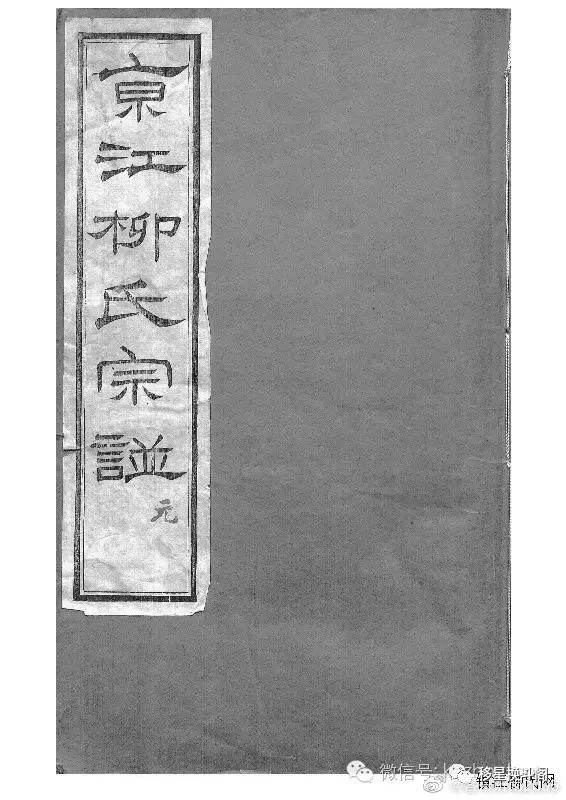 亰江柳氏宗譜
元
微信号: